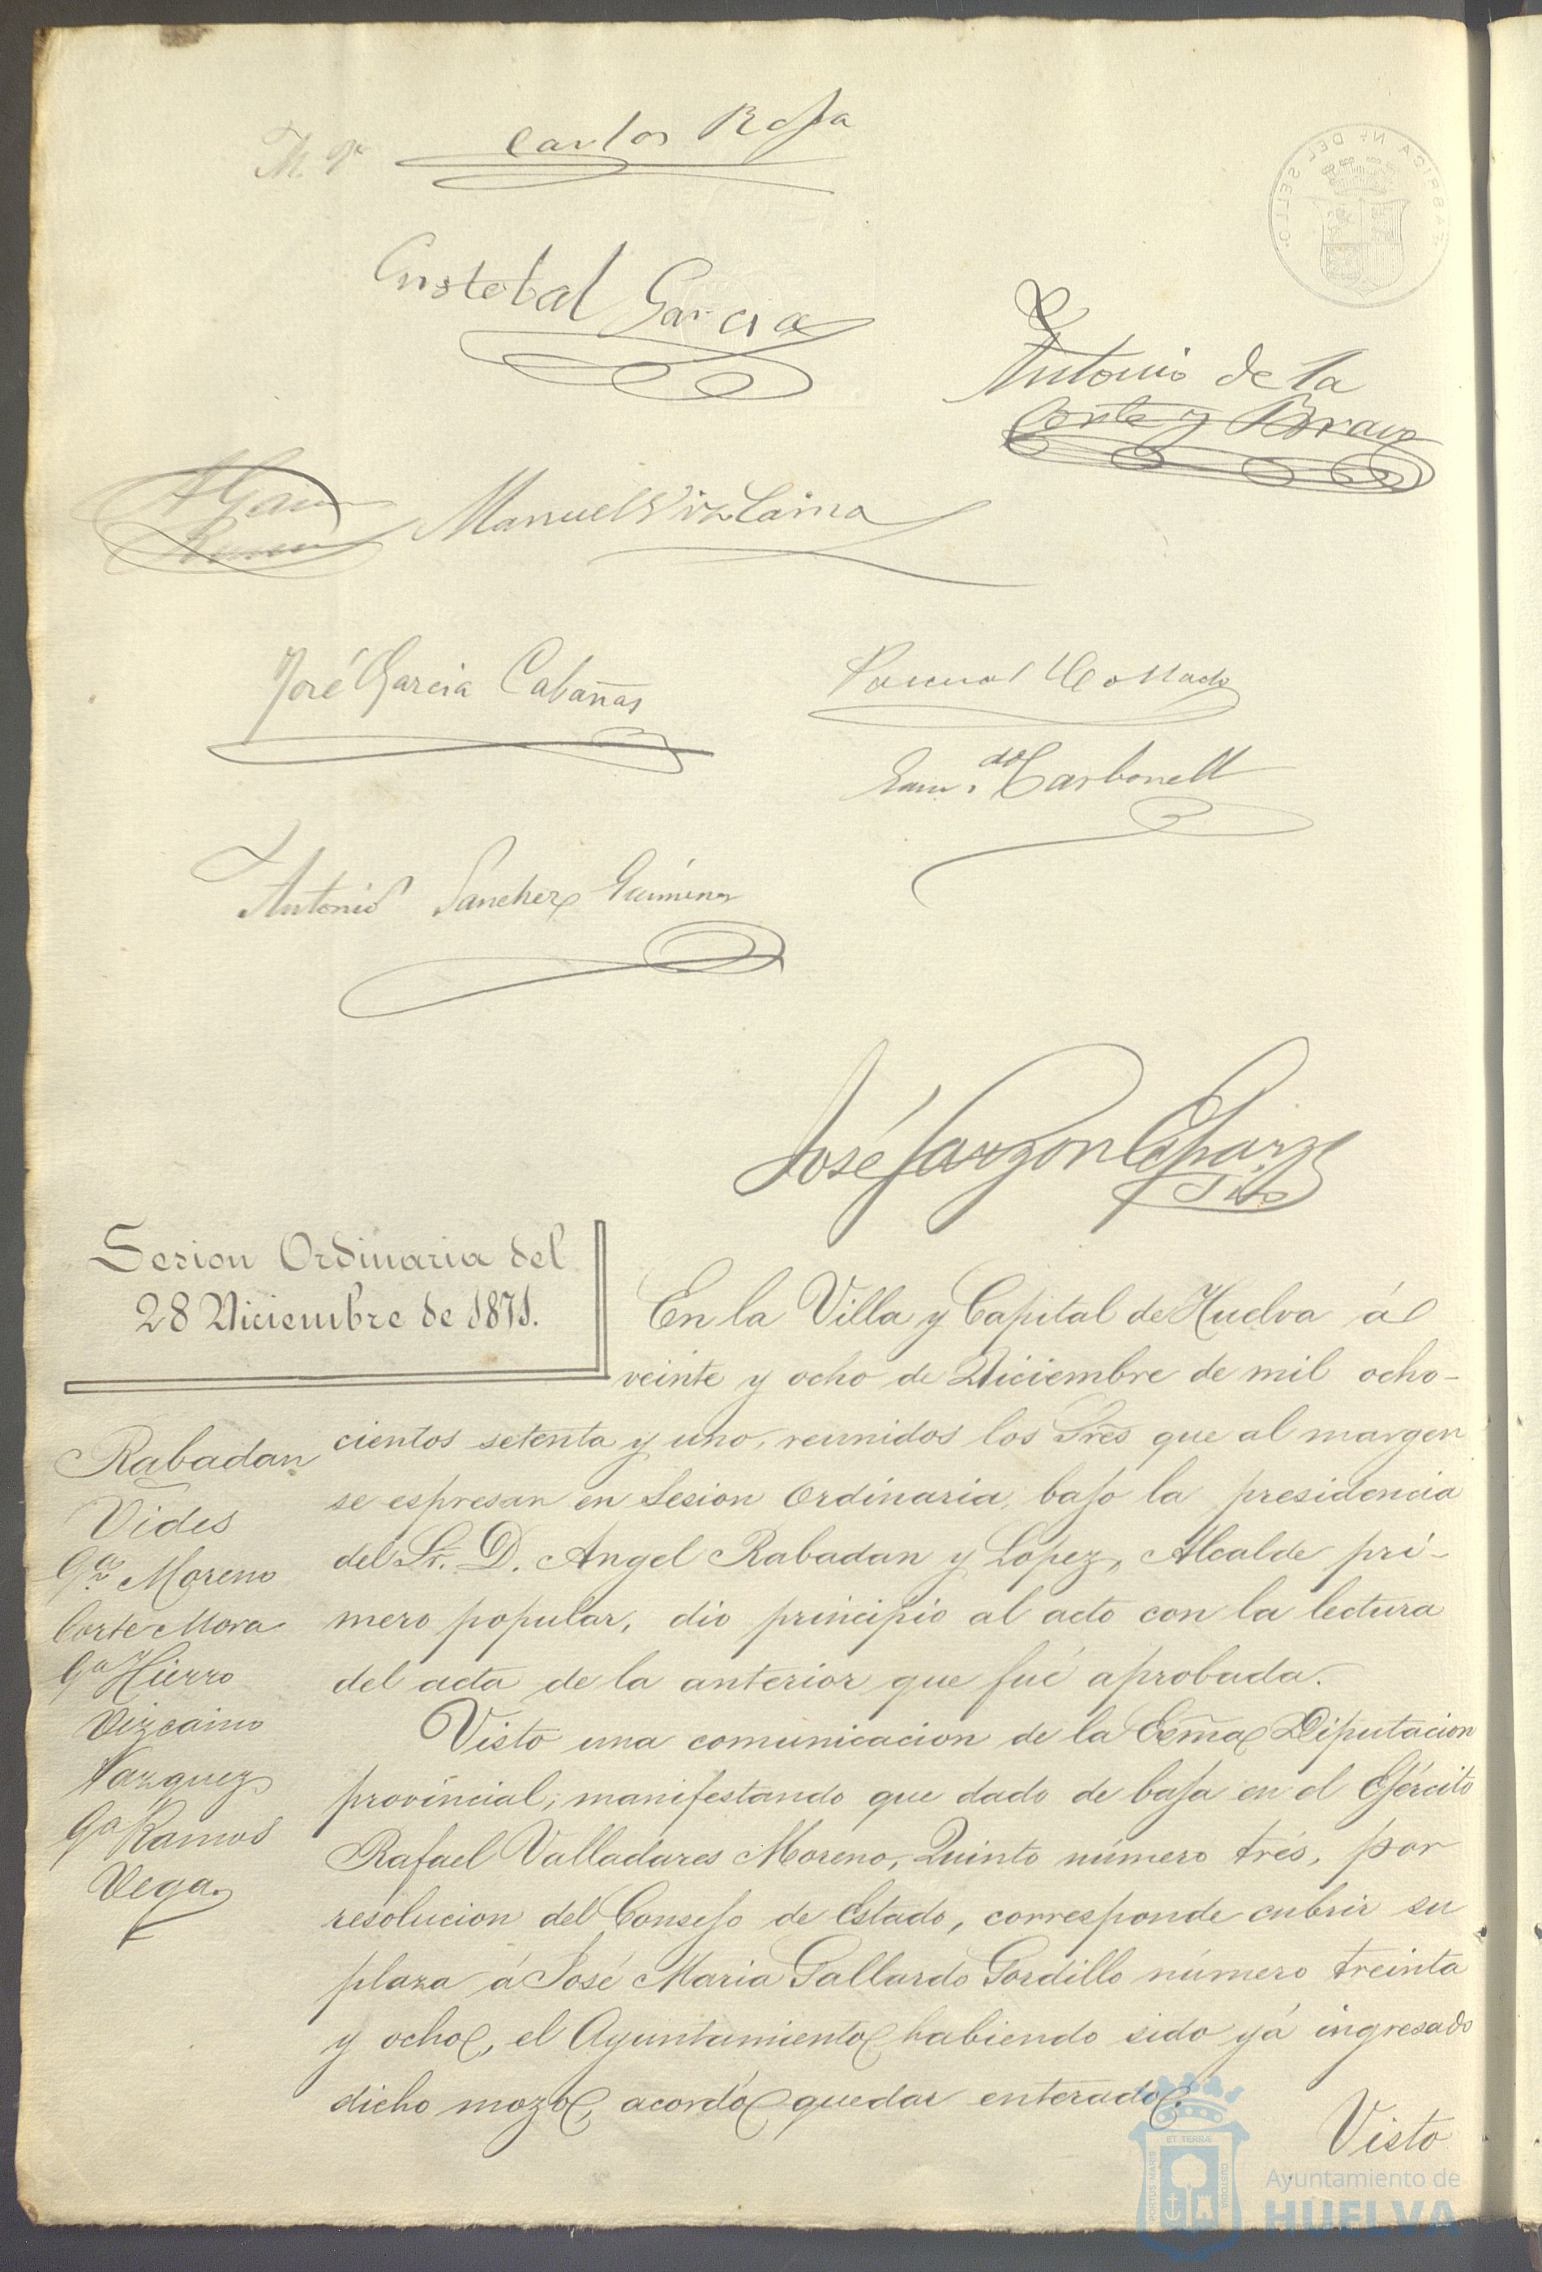 Carlos Rofa
FABRICA Nl. DEL SELLO
Cristobal Garcia
Antonio de la
Corte y Bravo
Manuel Vizcaino
José Garcia Cabañas
Pascual Collado
Carbonell
Antonio Sanchez
José Garzon
Sesion Ordinaria del
28 Diciembre de 1871.
En la Villa y Capital de Huelva á
veinte y ocho de Diciembre de mil ocho-
cientos setenta y uno, reunidos los Sres que al margen
se espresan en Sesion Ordinaria, bajo la presidencia
del Sr. D. Angel Rabadan y Lopez, Alcalde pri-
mero popular, dio principio al acto con la lectura
del acta de la anterior que fué aprobada.
Rabadan
Vides
Ga Moreno
Corte Mora
Ga Hierro
Vizcaino
Vazquez
Ga Ramos
Vega
Visto una comunicacion de la Ecma Diputacion
provincial, manifestando que dado de baja en el Ejército
Rafael Valladares Moreno, Quinto número trés, por
resolucion del Consejo de Estado, corresponde cubrir su
plaza á José Maria Gallardo Gordillo número treinta
y ocho, el Ayuntamiento habiendo sido yá ingresado
dicho mozo, acordó quedar enterado.
Visto
ET TERRÆ
PORTUS MARIS
CUSTODIA
Ayuntamiento de
HUELVA